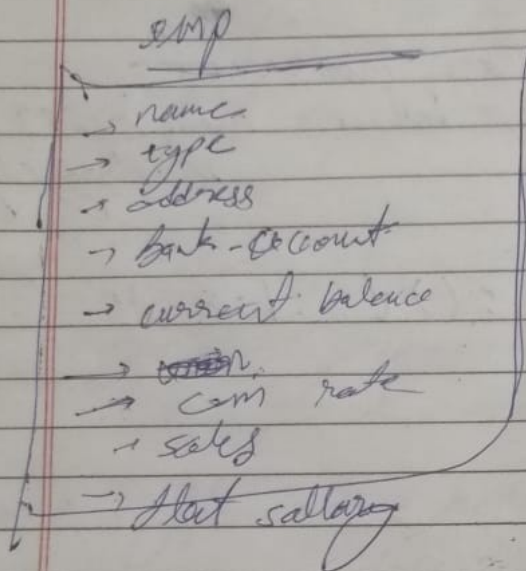 emp
→ name
→ type
→ address
→ bank-account
→ current balance
→
→ com rate
→ sales
→ flat sallary